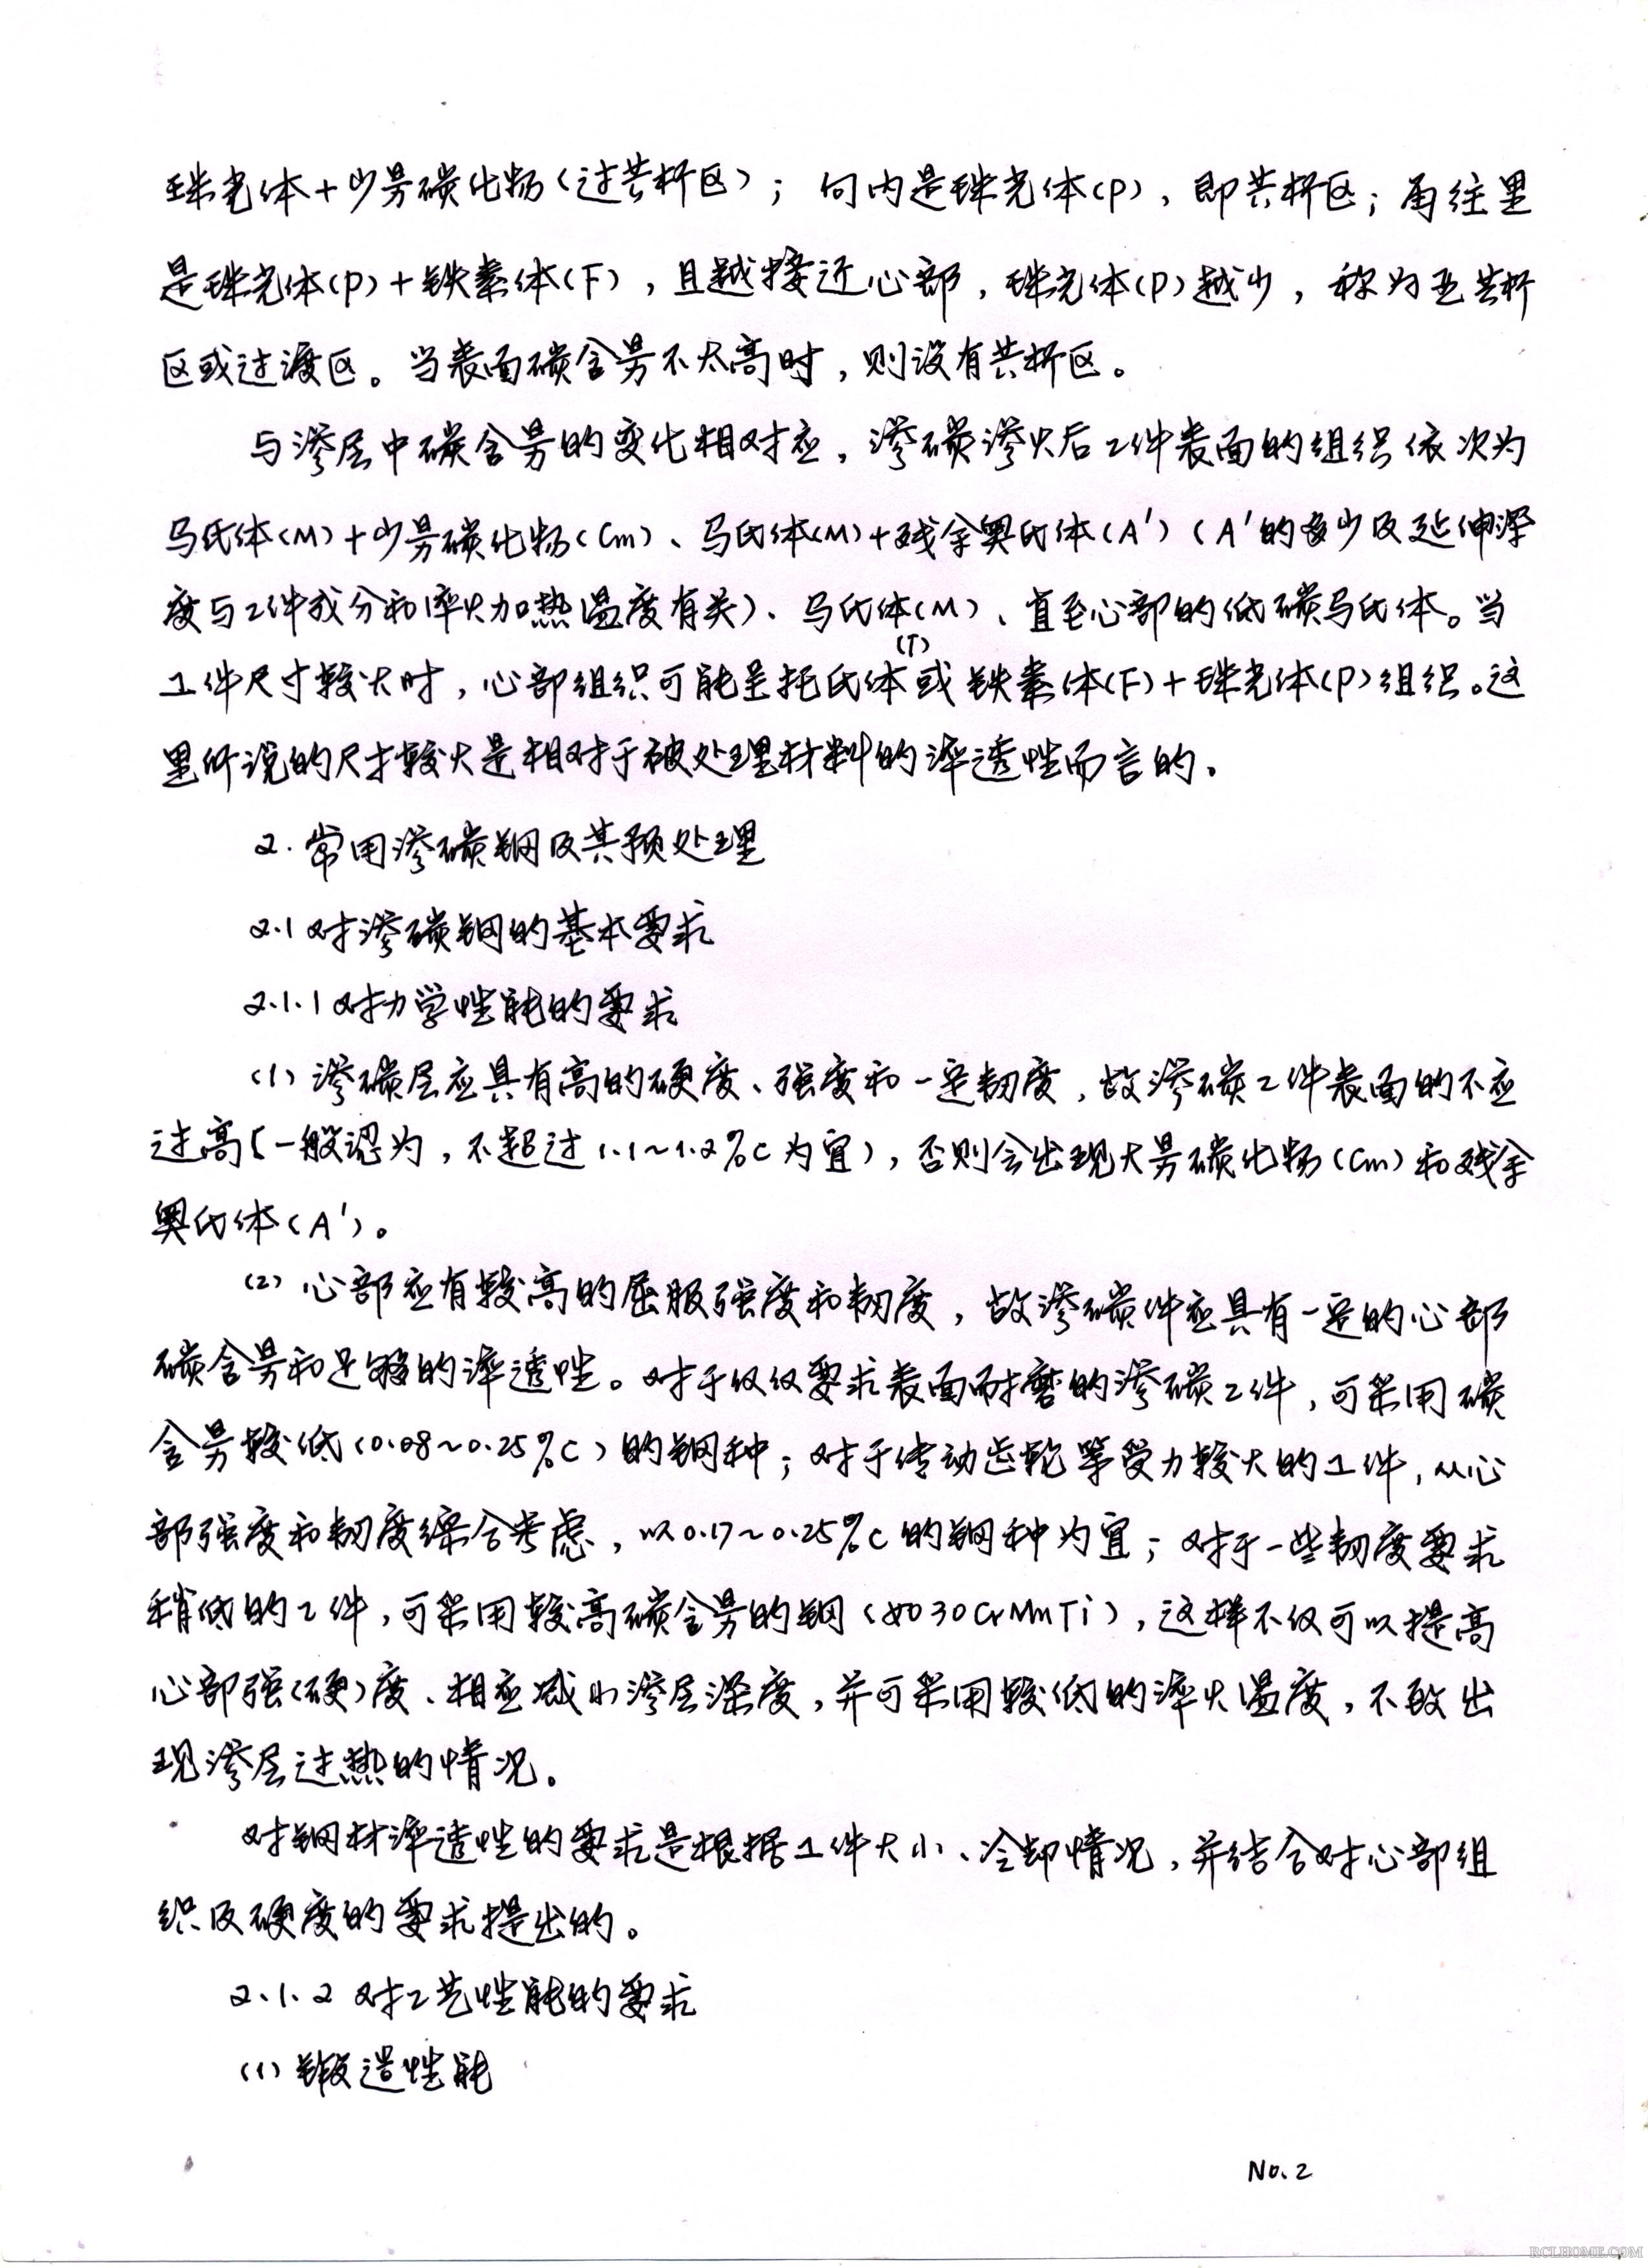 珠光体+少量碳化物(过共析区)；向内是珠光体(P)，即共析区；再往里
是珠光体(P)+铁素体(F)，且越接近心部，珠光体(P)越少，称为亚共析
区或过渡区。当表面碳含量不太高时，则没有共析区。
与渗层中碳含量的变化相对应，渗碳渗火后工件表面的组织依次为
马氏体(M)+少量碳化物(Cm)、马氏体(M)+残余奥氏体(A')(A'的多少及延伸深
度与工件成分和淬火加热温度有关)、马氏体(M)、直至心部的低碳马氏体。当
工件尺寸较大时，心部组织可能是托氏体(T)或铁素体(F)+珠光体(P)组织。这
里所说的尺寸较大是相对于被处理材料的淬透性而言的。
2.常用渗碳钢及其预处理
2.1对渗碳钢的基本要求
2.1.1对力学性能的要求
(1)渗碳层应具有高的硬度、强度和一定韧度，故渗碳工件表面的不应
过高(一般认为，不超过1.1~1.2%C为宜)，否则会出现大量碳化物(Cm)和残余
奥氏体(A')。
(2)心部应有较高的屈服强度和韧度，故渗碳件应具有一定的心部
碳含量和足够的淬透性。对于仅仅要求表面耐磨的渗碳工件，可采用碳
含量较低(0.08~0.25%C)的钢种；对于传动齿轮等受力较大的工件，从心
部强度和韧度综合考虑，以0.17~0.25%C的钢种为宜；对于一些韧度要求
稍低的工件，可采用较高碳含量的钢(如30CrMnTi)，这样不仅可以提高
心部强(硬)度、相应减小渗层深度，并可采用较低的淬火温度，不致出
现渗层过热的情况。
对钢材淬透性的要求是根据工件大小、冷却情况，并结合对心部组
织及硬度的要求提出的。
2.1.2对工艺性能的要求
(1)锻造性能
No.2
RCLHOME.COM